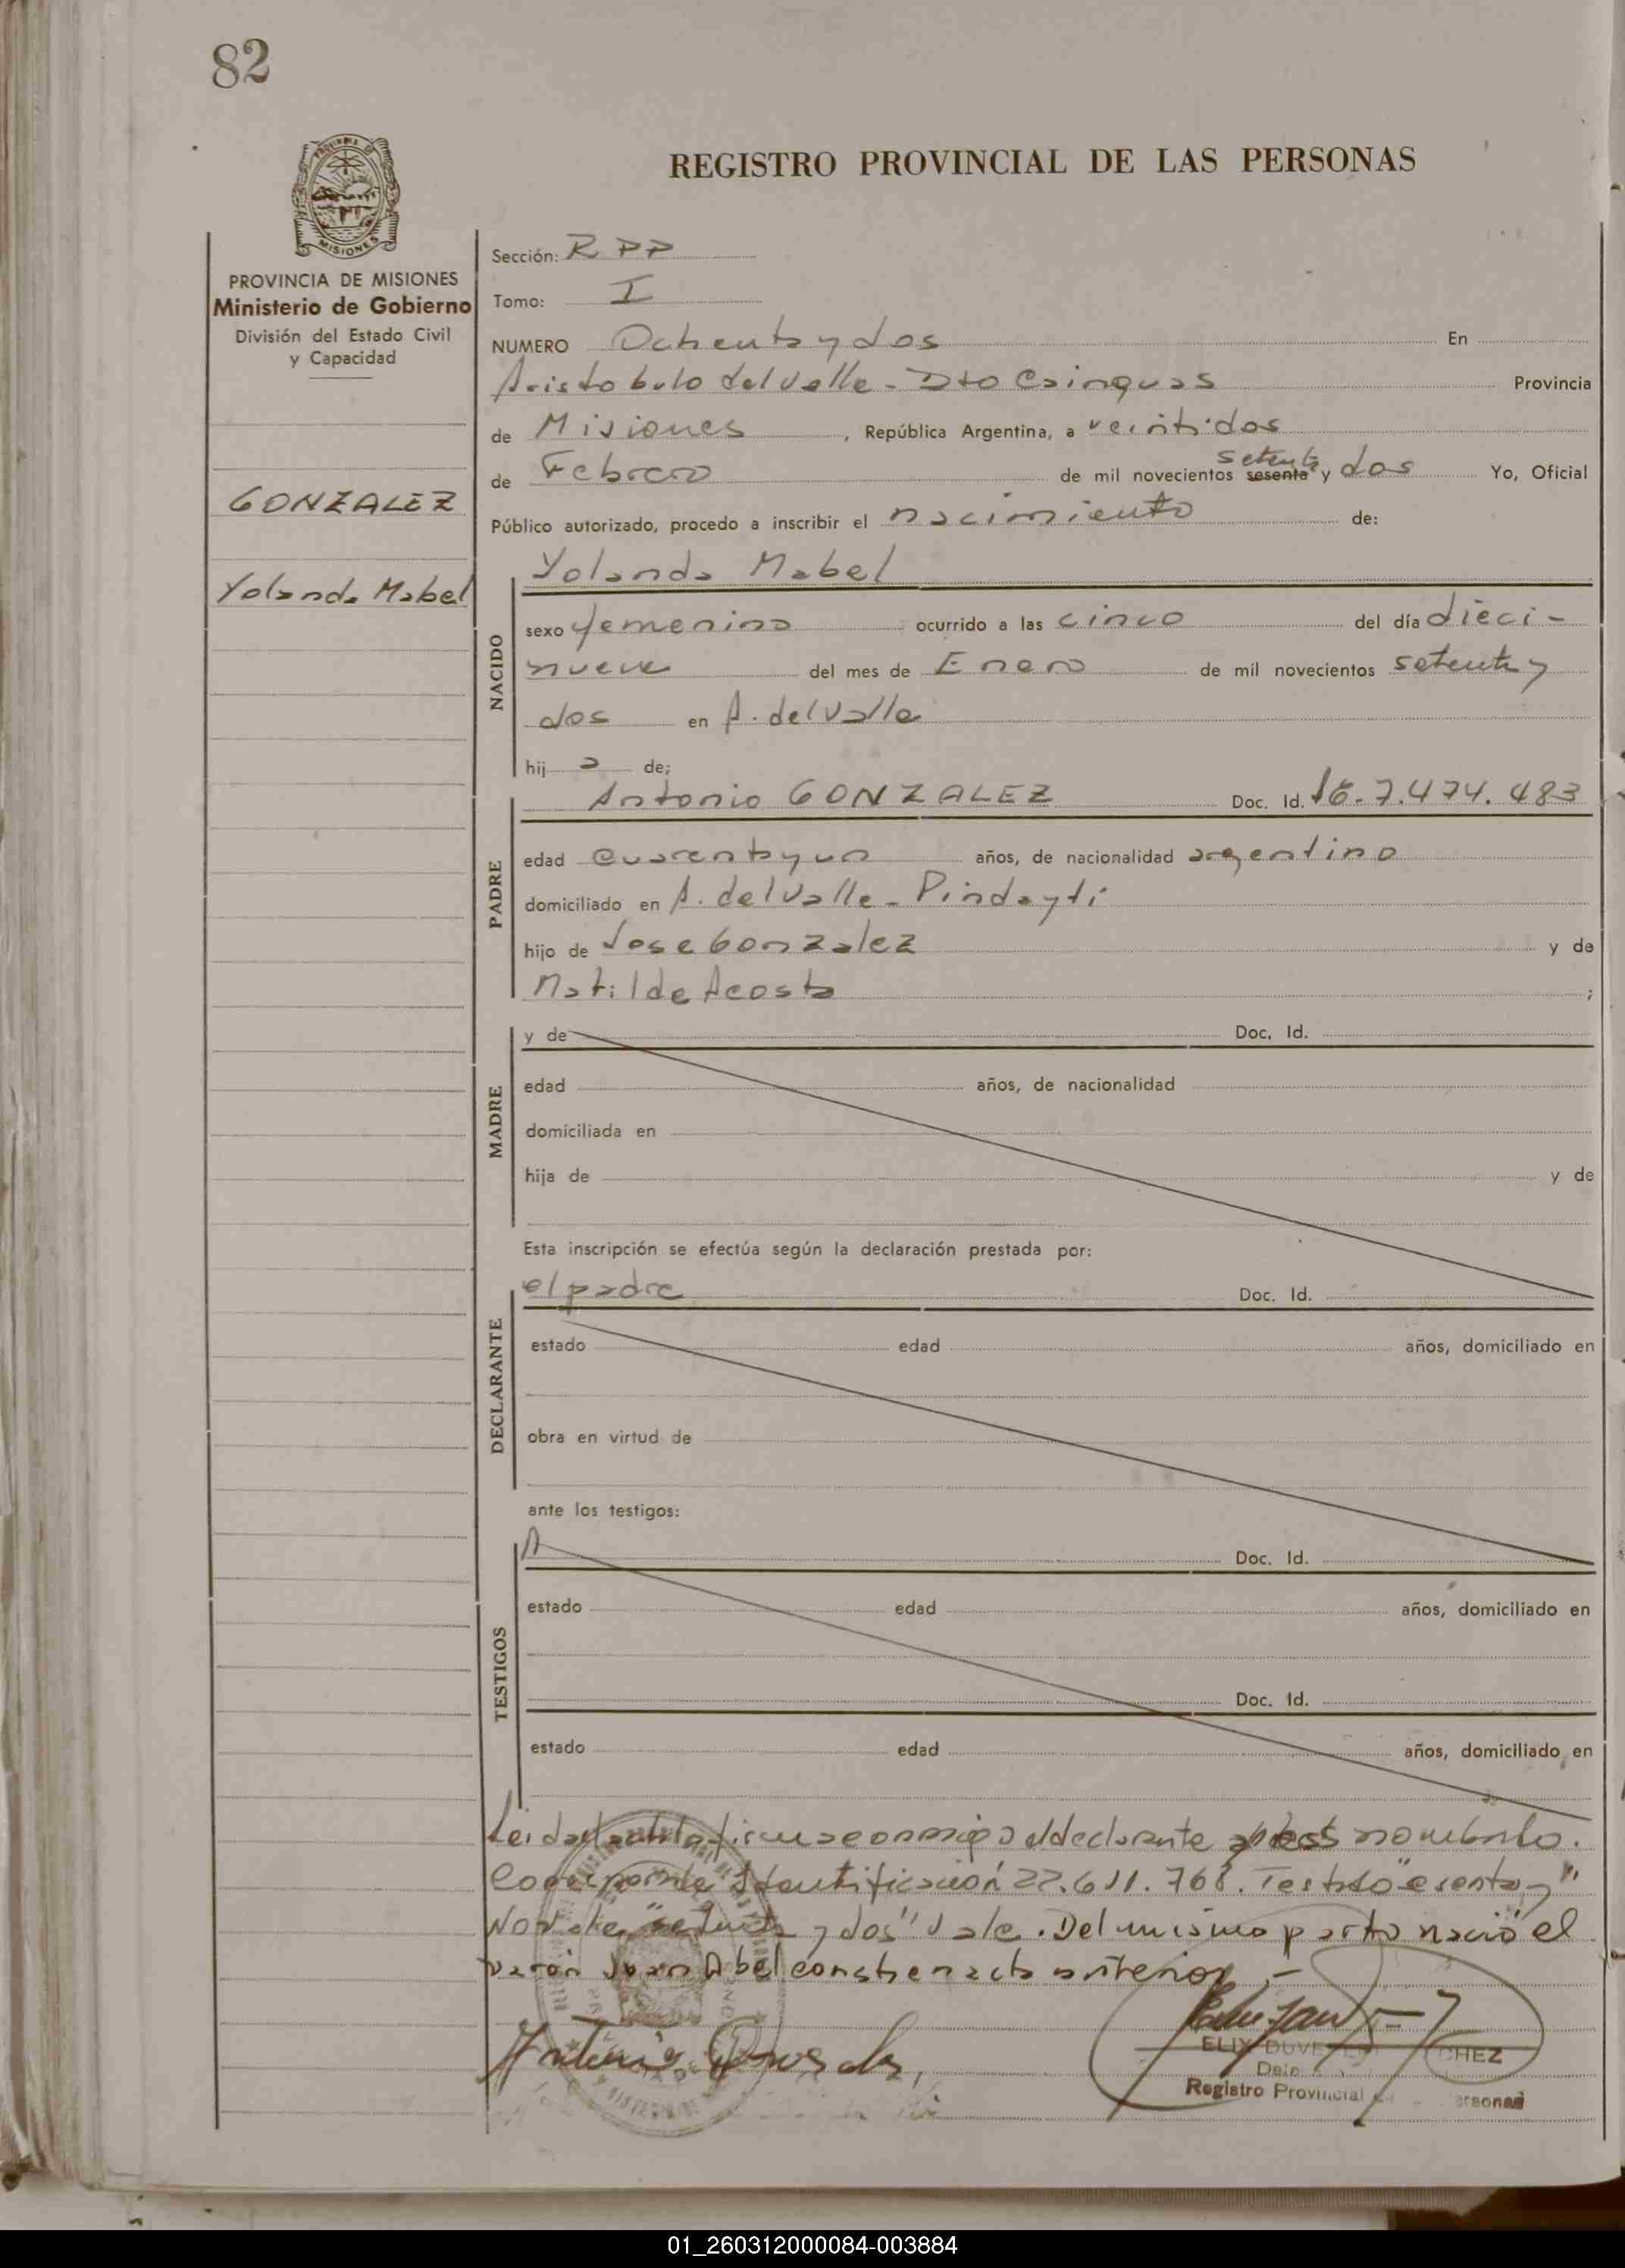 82
REGISTRO PROVINCIAL DE LAS PERSONAS
PROVINCIA DE
MISIONES
PROVINCIA DE MISIONES
Ministerio de Gobierno
División del Estado Civil
y Capacidad
GONZALEZ
Yolanda Mabel
Sección: R P P
Tomo: I
NUMERO Ochenta y dos En
Aristobulo del Valle - Dto Cainguas Provincia
de Misiones, República Argentina, a veintidos
setenta
de Febrero de mil novecientos sesenta y dos Yo, Oficial
Público autorizado, procedo a inscribir el nacimiento de:
Yolanda Mabel
NACIDO
sexo femenino ocurrido a las cinco del día dieci-
nueve del mes de Enero de mil novecientos setenta y
dos en A. del Valle
hij a de;
PADRE
Antonio GONZALEZ Doc. Id. 7.474.483
edad cuarenta y un años, de nacionalidad argentino
domiciliado en A. del Valle - Pindaytí
hijo de Jose Gonzalez y de
Matilde Acosta ;
MADRE
y de Doc. Id.
edad años, de nacionalidad
domiciliada en
hija de y de
Esta inscripción se efectúa según la declaración prestada por:
el padre Doc. Id.
DECLARANTE
estado edad años, domiciliado en
obra en virtud de
ante los testigos:
TESTIGOS
Doc. Id.
estado edad años, domiciliado en
Doc. Id.
estado edad años, domiciliado en
Leida el acta la firma conmigo el declarante nombrado.
Corresponde Identificación 22.611.768. Testado "esenta y"
No vale "setenta y dos" Vale. Del mismo parto nació el
varón Juan Abel consta en acta anterior.-
Antonio
ELIX DUVE CHEZ
Registro Provincial ersonas
01_260312000084-003884